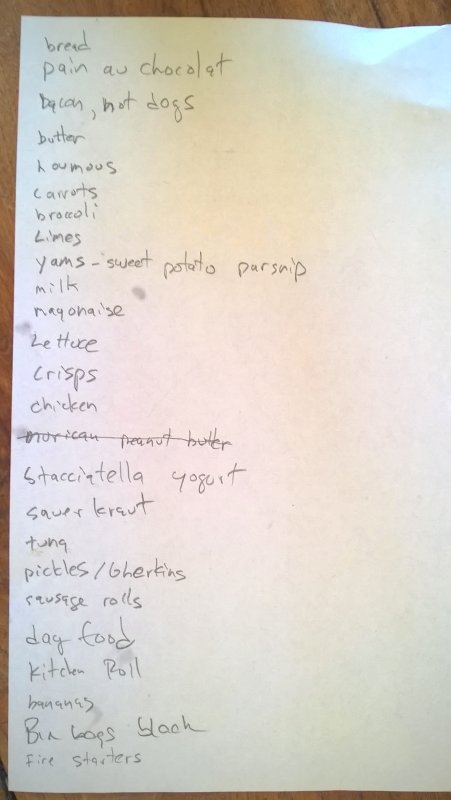 bread
pain au chocolat
bacon, hot dogs
butter
houmous
carrots
broccoli
Limes
yams - sweet potato parsnip
milk
mayonaise
Lettuce
crisps
chicken
peanut butter
Stacciatella yogurt
sauerkraut
tuna
pickles/Gherkins
sausage rolls
dog food
Kitchen Roll
bananas
Bin bags black
Fire starters